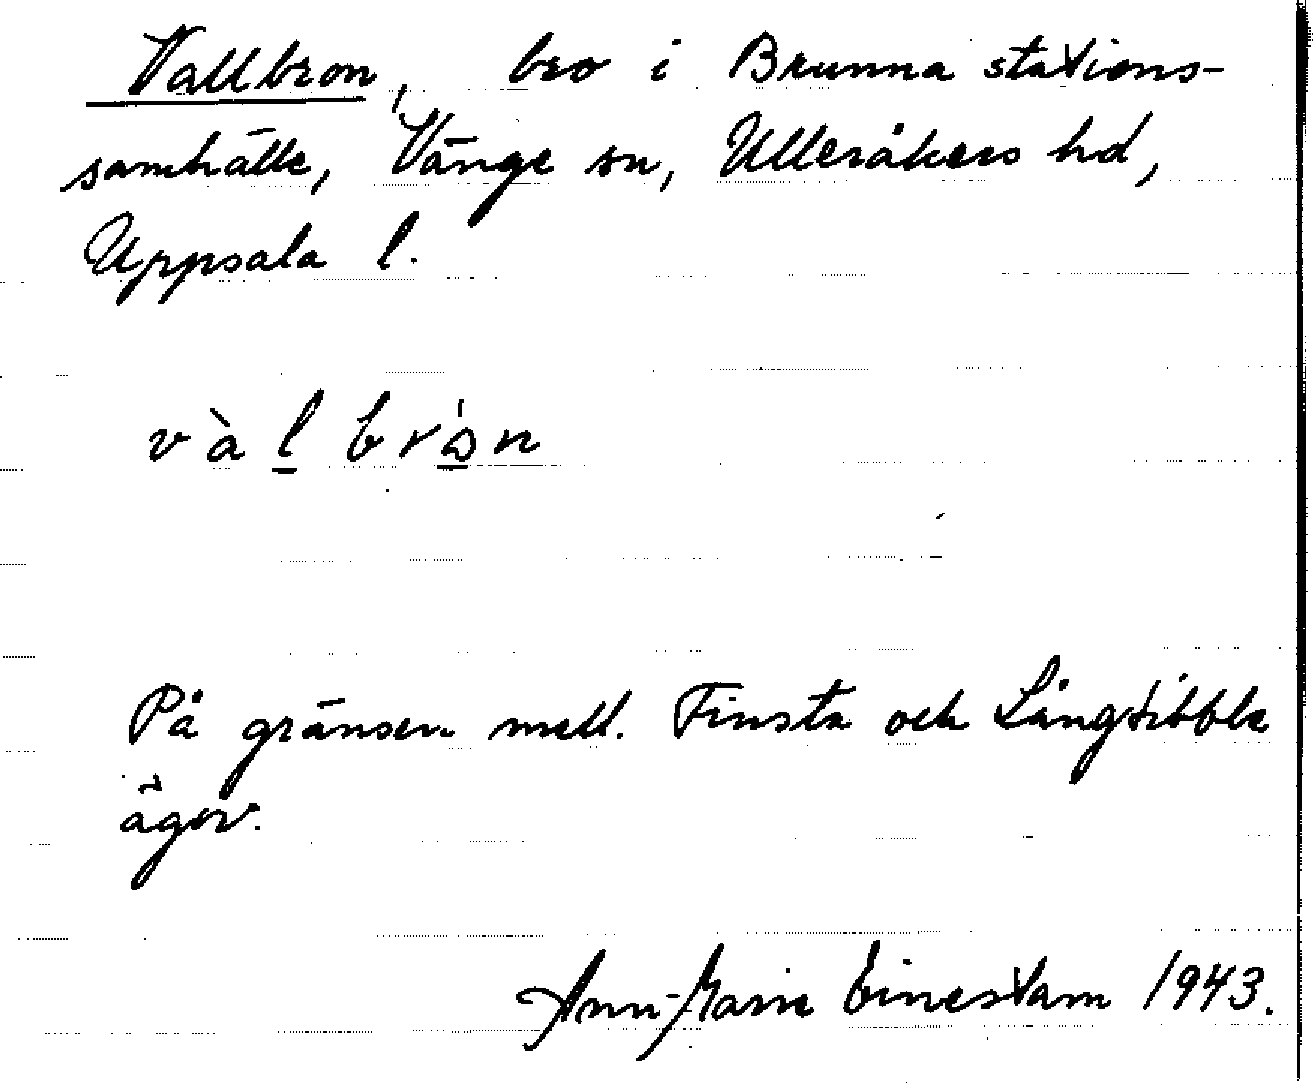 Vallbron, bro i Brunna stations-
samhälle, Vänge sn, Ulleråkers hd,
Uppsala l.
và l brån
På gränsen mell. Finsta och Långtibble
ägor.
Ann-Marie Einestam 1943.